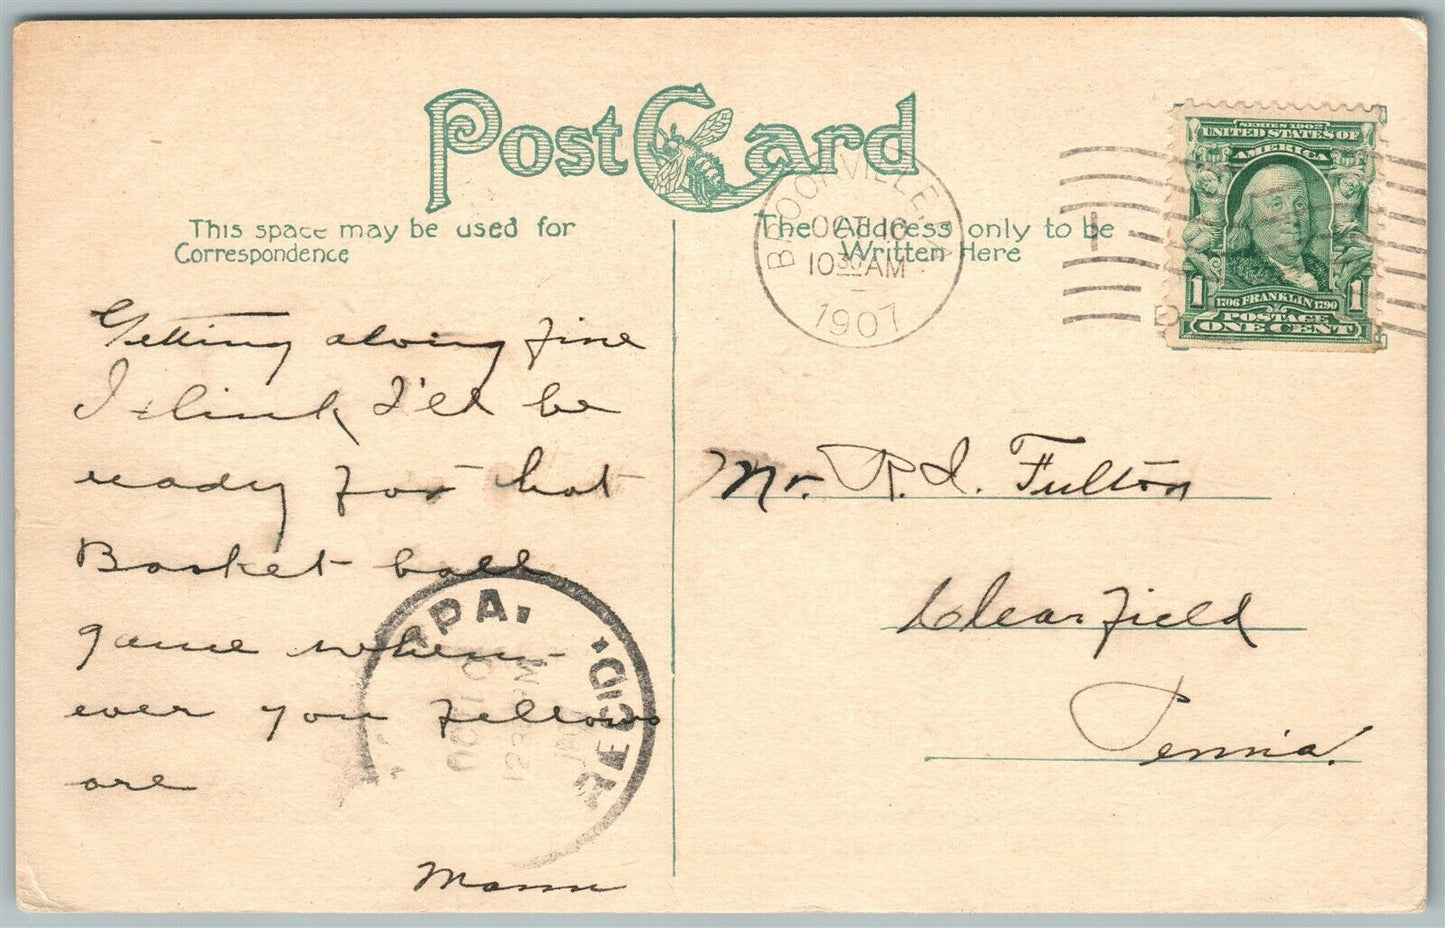 Post Card
This space may be used for
Correspondence
The Address only to be
Written Here
BROOKVILLE, PA.
OCT 16
10 30 AM
1907
SERIES 1902
UNITED STATES OF
AMERICA
1706 FRANKLIN 1790
1 1
POSTAGE
ONE CENT
Getting along fine
I think I'll be
ready for that
Basket ball
game when-
ever you fellows
are
Mann
Mr. R. I. Fulton
Clearfield
Penna.
PA.
REC'D.